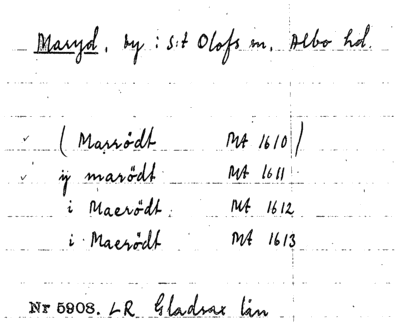 Maryd, by i S:t Olofs sn, Albo hd.
( Marrödt MA 1610 )
ÿ marödt MA 1611
i Maerödt MA 1612
i Maerödt MA 1613
Nr 5908. LR Gladsax län